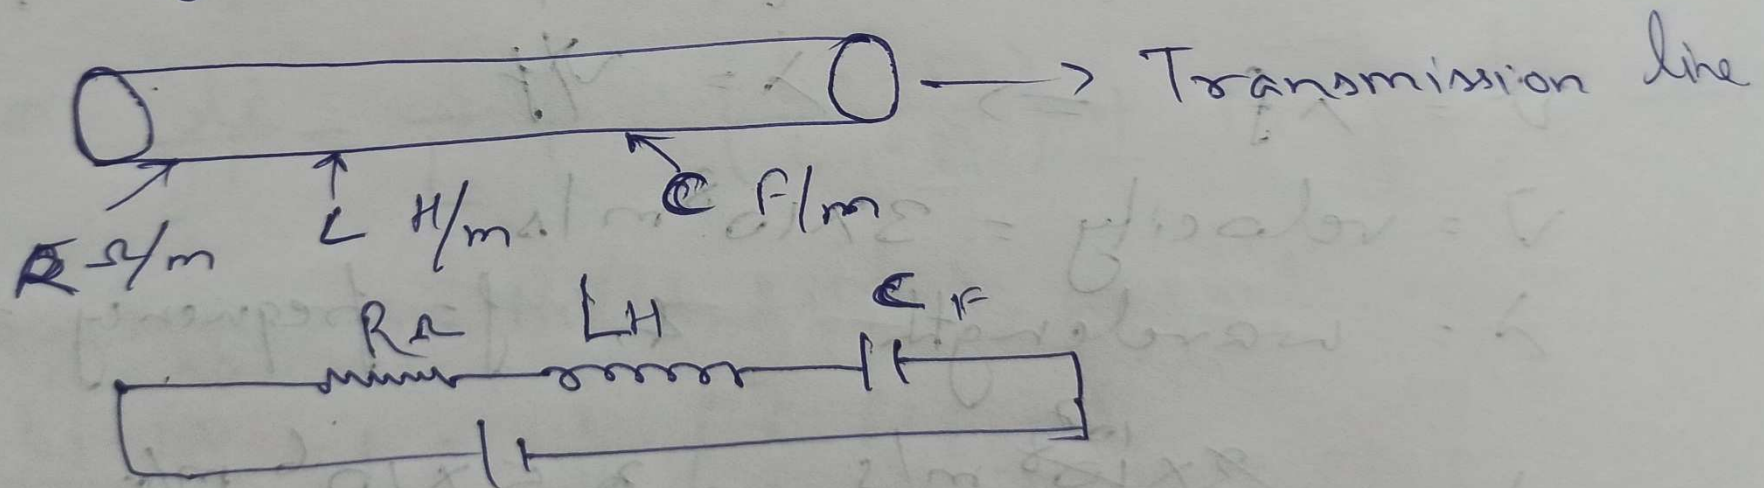 Transmission line
R Ω/m L H/m C F/m
R Ω L H C F